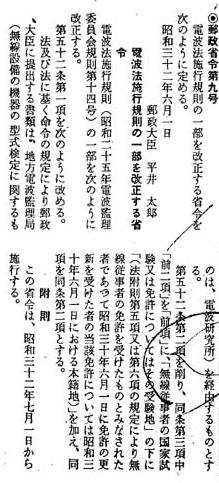 ◉郵政省令第九号
電波法施行規則の一部を改正する省令を
次のように定める。
昭和三十二年六月一日
郵政大臣 平井 太郎
電波法施行規則の一部を改正する省
令
電波法施行規則（昭和二十五年電波監理
委員会規則第十四号）の一部を次のように
改正する。
第五十二条第一項を次のように改める。
法及び法に基く命令の規定により郵政
大臣に提出する書類は、地方電波監理局
（無線設備の機器の型式検定に関するも
のは、電波研究所）を経由するものとす
る。
第五十二条第二項を削り、同条第三項中
「前二項」を「前項」に、「無線従事者の国家試
験又は免許についてはその受験地」の下に
「（法附則第五項又は第六項の規定により無
線従事者の免許を受けたものとみなされた
者であつて昭和三十年六月一日に免許の更
新を受けた者の当該免許については昭和三
十年六月一日における本籍地）」を加え、同
項を同条第二項とする。
附 則
この省令は、昭和三十二年七月一日から
施行する。